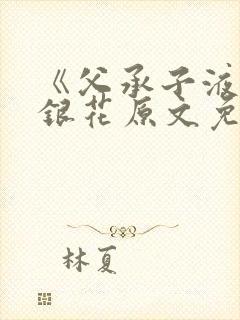 《父承子液
銀花原文免
林夏